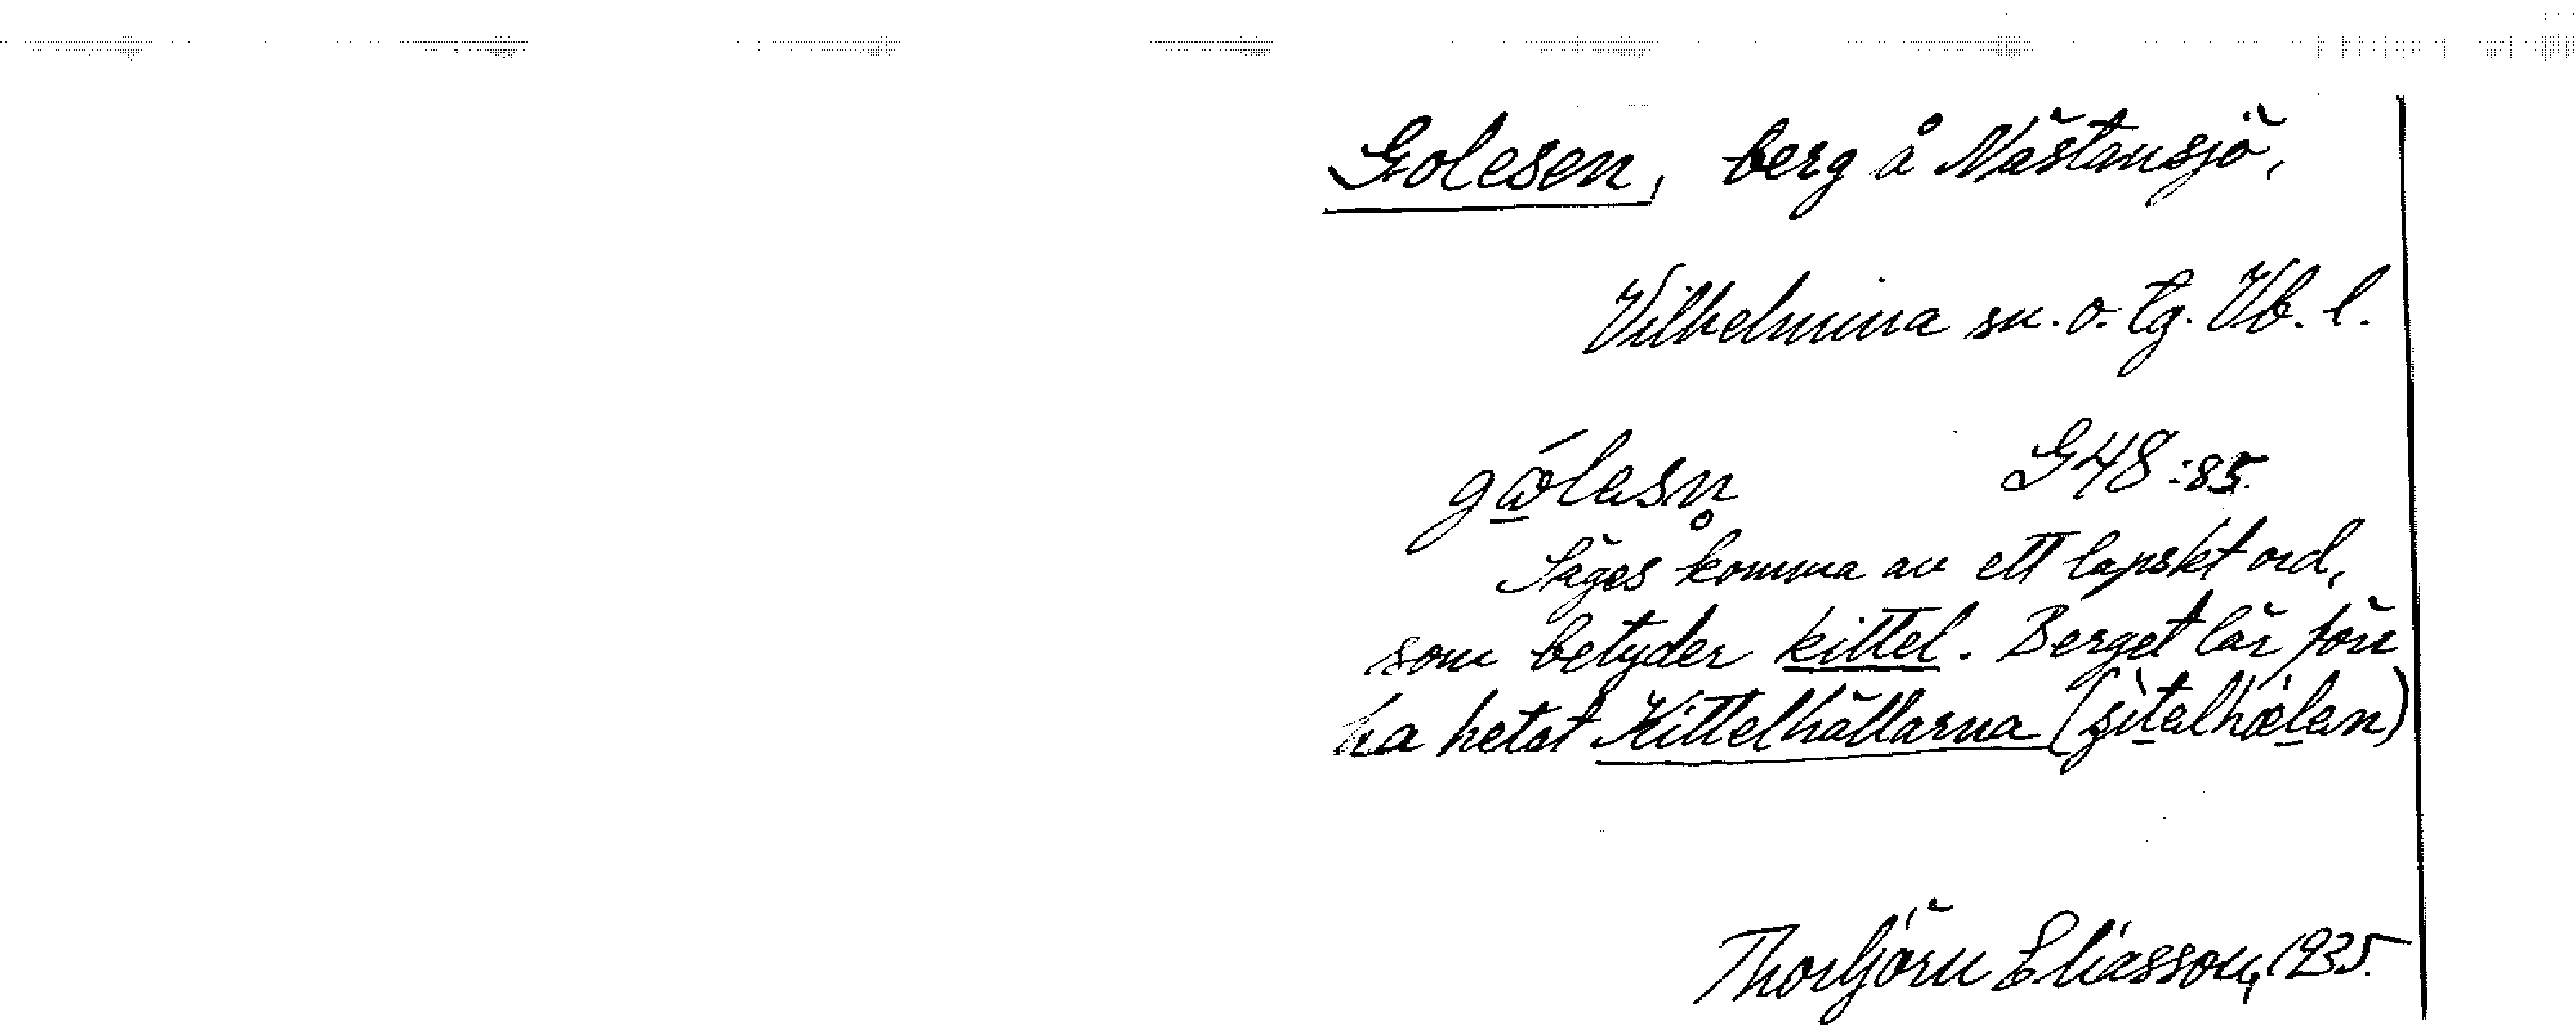 Golesen, berg å Nästansjö,
Vilhelmina sn. o. tg. Vb. l.
gó̱lasn̥ G48:85.
Säges komma av ett lapskt ord,
som betyder kittel. Berget lär förr
ha hetat Kittelhällarna (ʒìt̲alhæl̲an)
Thorbjörn Eliasson, 1935.